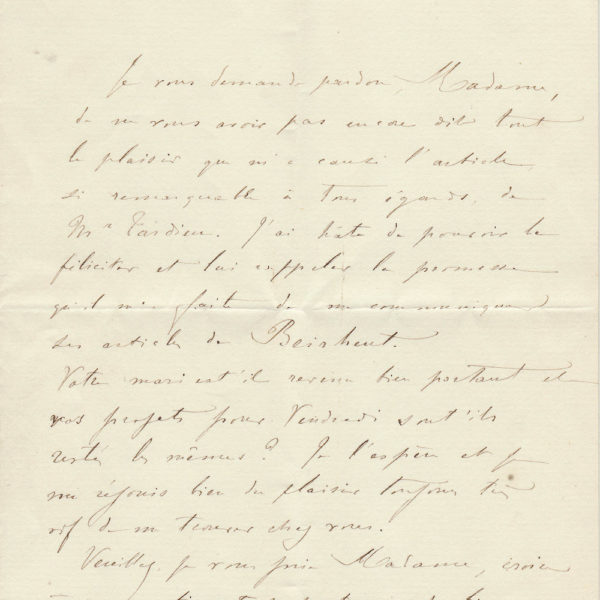 Je vous demande pardon, Madame,
de ne vous avoir pas encore dit tout
le plaisir que m'a causé l'article
si remarquable à tous égards, de
Mr Tardieu. J'ai hâte de pouvoir le
féliciter et lui rappeler la promesse
qu'il m'a faite de me communiquer
ses articles de
Votre mari est'il revenu bien portant et
vos projets pour Vendredi sont'ils
restés les mêmes? Je l'espère et je
me réjouis bien du plaisir toujours très
vif de me trouver chez vous.
Veuillez, je vous prie Madame, croire